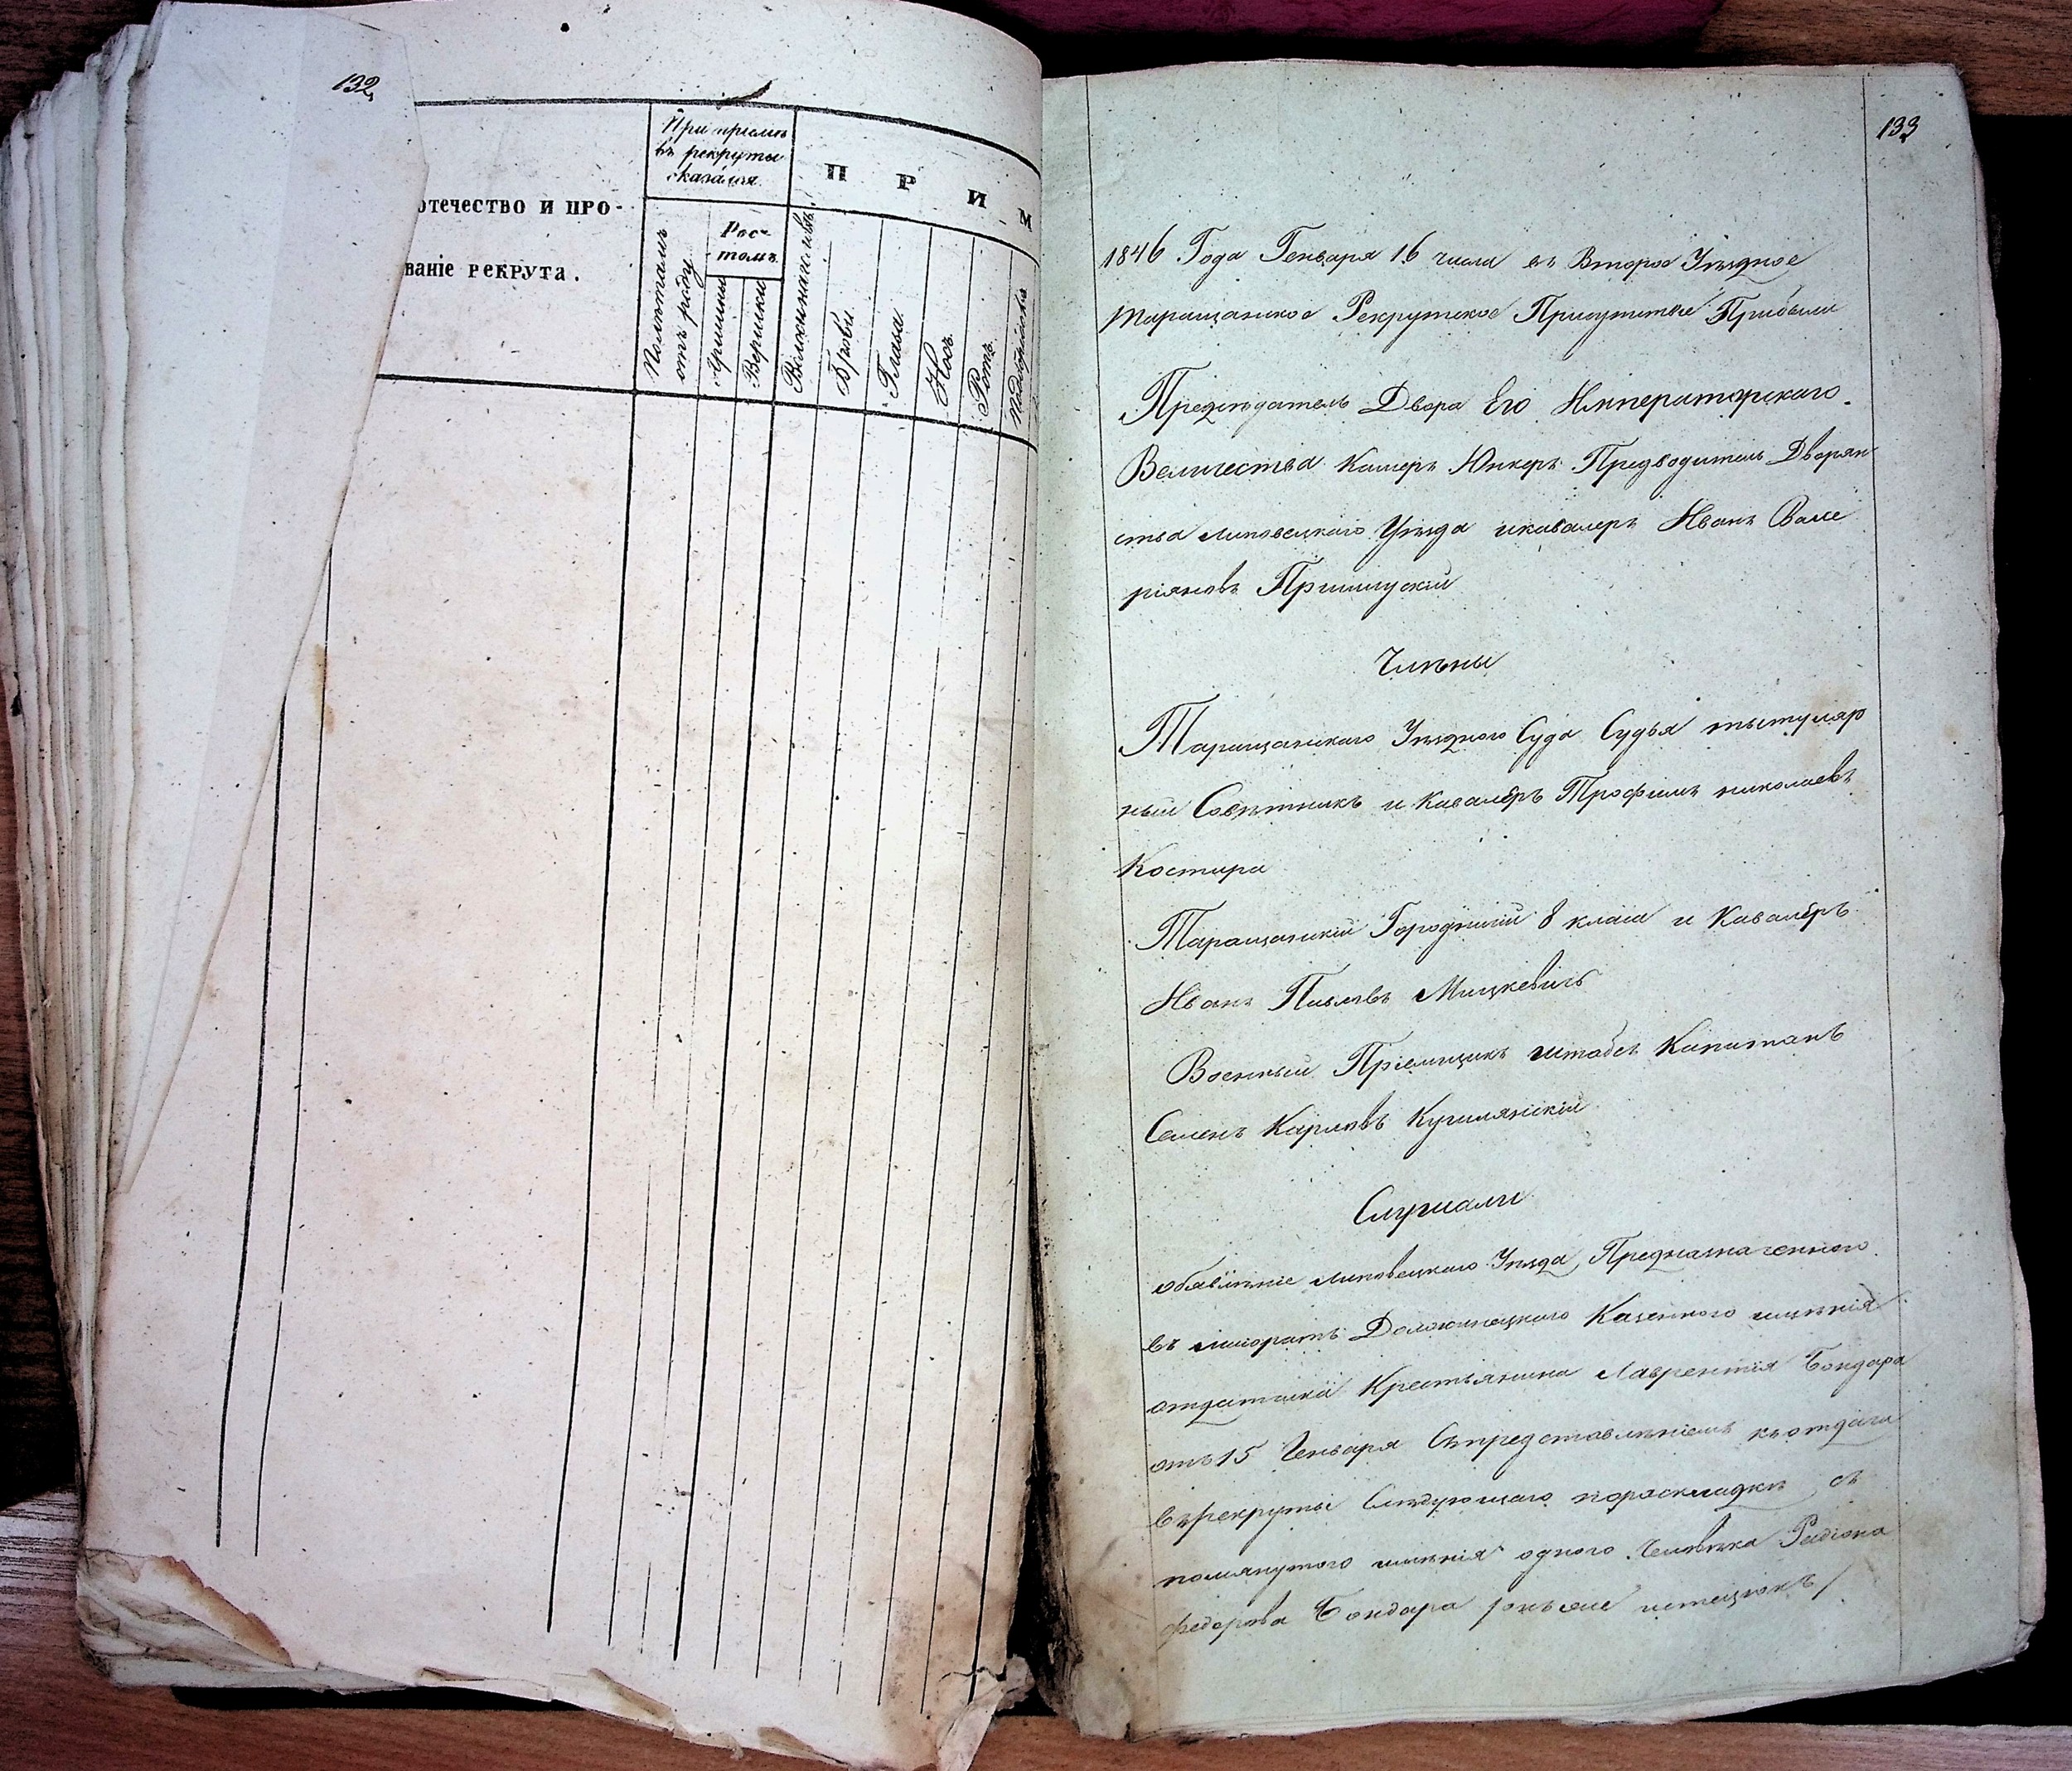 132
отечество и про-
ваніе рекрута.
При пріемѣ
въ рекруты
оказался
П Р И М
Полѣтамъ
отъ роду
Рос-
томъ
Аршинъ
Вершки
Брови
Глаза
Носъ
Ротъ
133
1846 Года Генваря 16 числа въ Второе Уѣздное
Таращанское Рекрутское Присутствіе Прибыли
Предсѣдатель Двора Его Императорскаго
Величества Камеръ Юнкеръ Предводитель Дворян
ства Липовецкаго Уѣзда икавалеръ Иванъ Вале
ріяновъ
Члѣны
Таращанскаго Уѣзднаго Суда Судья тытуляр
ный Совѣтникъ и Кавалеръ Трофимъ николаевъ
Костыра
Таращанскій Городничій 8 класа и Кавалеръ
Иванъ Павловъ Мицкевичъ
Военный Пріемщикъ штабсъ Капитанъ
Семенъ Карловъ
Слушали
объявлѣніе Липовецкаго Уѣзда, Предназначенного
въ маіоратъ Казенного имѣнія
отдатчика Крестьянина Лаврентія Бондара
отъ 15 Генваря Съпредставлѣніемъ къотдачи
върекруты Слѣдующаго пораскладкѣ съ
помянутого имѣнія одного Человѣка Радіона
федорова Бондара /онъ же